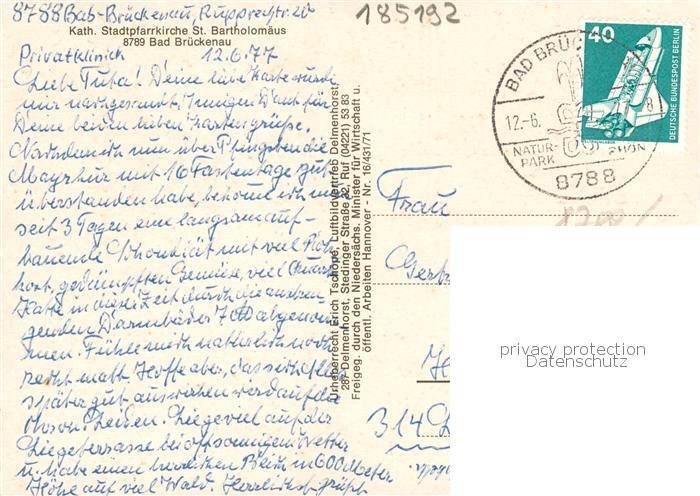 8788 Bad-Brückenau, Rupprechtstr. 20
Kath. Stadtpfarrkirche St. Bartholomäus
8789 Bad Brückenau
Privatklinik 12.6.77
Liebe Tuta! Deine liebe Karte wurde
mir nachgesandt. Innigen Dank für
Deine beiden lieben Kartengrüße.
Nachdem ich nun über Pfingsten die
Mayrkur mit 16 Fastentage gut
überstanden habe, bekomme ich nun
seit 3 Tagen eine langsam auf-
bauende Schondiät mit viel Roh-
kost, gedämpftem Gemüse, viel Quark
Habe in dieser Zeit durch die anstren
genden Darmbäder 7 abgenom
men. Fühle mich natürlich noch
recht matt. Hoffe aber, dass sich alles
später gut auswirken wird auf die
Liege viel auf der
Liegeterrasse bei oft sonnigem Wetter
u. habe einen herrlichen Blick in 600 Meter
Höhe auf viel Wald. Herzlichst grüßt
Urheberrecht Erich Tschöpe, Luftbildvertrieb Delmenhorst,
287 Delmenhorst, Stedinger Straße 82, Ruf (04221) 53 83
Freigeg. durch den Niedersächs. Minister für Wirtschaft u.
öffentl. Arbeiten Hannover - Nr. 16/431/71
185192
BAD BRÜC
12.-6.
8
NATUR-
PARK RHÖN
8788
40
DEUTSCHE BUNDESPOST BERLIN
Frau
314
privacy protection
Datenschutz